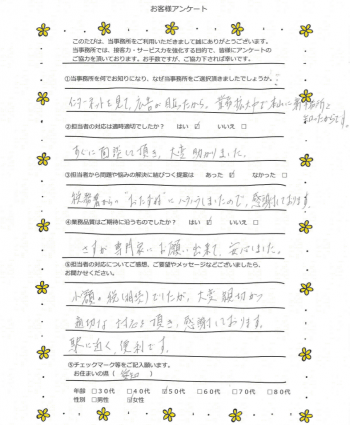 お客様アンケート
このたびは、当事務所をご利用いただきまして誠にありがとうございます。
当事務所では、接客力・サービス力を強化する目的で、皆様にアンケートの
ご協力を頂いております。お手数ですが、ご協力下されば幸いです。
①当事務所を何でお知りになり、なぜ当事務所をご選択頂きましたでしょうか。
インターネットを見て、広告が
②担当者の対応は適時適切でしたか? はい ☑ いいえ □
すぐに面談して頂き、大変助かりました。
③担当者から問題や悩みの解決に結びつく提案は あった ☑ なかった □
税務署からの"おたずね"にハラハラしましたので、感謝しております。
④業務品質はご期待に沿うものでしたか? はい ☑ いいえ □
さすが専門家にお願い出来て、安心しました。
⑤担当者の対応についてご感想、ご要望やメッセージなどございましたら、
お聞かせください。
小額の税(相続)でしたが、大変親切かつ
適切な対応を頂き、感謝しております。
駅に近く、便利です。
⑥チェックマーク等をご記入願います。
お住まいの県( 愛知 )
年齢 □30代 □40代 ☑50代 □60代 □70代 □80代
性別 □男性 ☑女性